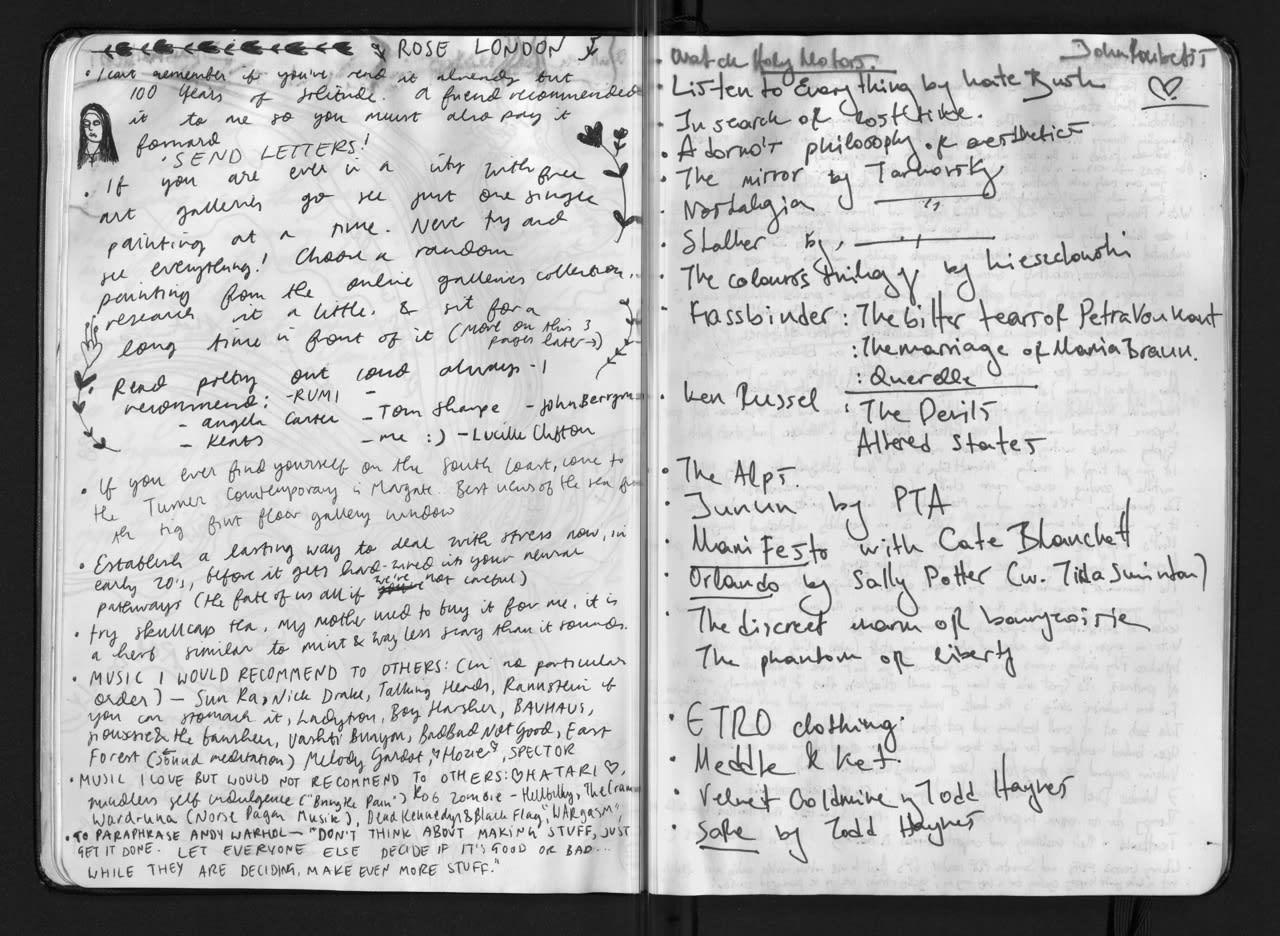 ROSE LONDON
• I cant remember if you've read it already but
100 Years of Solitude. A friend recommended
it to me so you must also pay it
forward
• SEND LETTERS!
• If you are ever in a city with free
art galleries go see just one single
painting at a time. Never try and
see everything! Choose a random
painting from the online galleries collection,
research it a little, & sit for a
long time in front of it (more on this 3
pages later →)
• Read poetry out loud always - I
recommend: - RUMI -
- Angela Carter - Tom Sharpe - John Berryman
- Keats - me :) - Lucille Clifton
• If you ever find yourself on the South Coast, come to
the Turner Contemporary in Margate. Best views of the sea from
the big first floor gallery window
• Establish a lasting way to deal with stress now, in
early 20's, before it gets hard-wired into your neural
pathways (the fate of us all if we're not careful)
• try skullcap tea, my mother used to buy it for me, it is
a herb similar to mint & way less scary than it sounds.
• MUSIC I WOULD RECOMMEND TO OTHERS: (in no particular
order) - Sun Ra, Nick Drake, Talking Heads, Rammstein if
you can stomach it, Ladytron, Boy Harsher, BAUHAUS,
siouxsie & the banshees, Vashti Bunyan, BadBadNotGood, East
Forest (sound meditation) Melody Gardot, "Hozier", SPECTOR
• MUSIC I LOVE BUT WOULD NOT RECOMMEND TO OTHERS: ♡HATARI♡,
mindless self indulgence ("Bring the Pain") Rob Zombie - Hellbilly, The Cramps
Wardruna (Norse Pagan Music), Dead Kennedys & Black Flag, "WARgasm",
• TO PARAPHRASE ANDY WARHOL - "DON'T THINK ABOUT MAKING STUFF, JUST
GET IT DONE. LET EVERYONE ELSE DECIDE IF IT'S GOOD OR BAD...
WHILE THEY ARE DECIDING, MAKE EVEN MORE STUFF."
• Watch Holy Motors.
• Listen to Everything by Kate Bush
• In search of lost time.
• Adorno's philosophy of aesthetics
• The mirror by Tarkovsky
• Nostalgia — " —
• Stalker by — " —
• The colours trilogy by Kieszlowski
• Fassbinder : The bitter tears of Petra Von Kant
: The marriage of Maria Braun.
: Querelle
• Ken Russel : The Devils
Altered States
• The Alps.
• Junun by PTA
• Manifesto with Cate Blanchett
• Orlando by Sally Potter (w. Tilda Swinton)
• The discreet charm of bourgeoisie
The phantom of liberty
• ETRO clothing.
• Meddle & Ket.
• Velvet Goldmine by Todd Haynes
• Safe by Todd Haynes